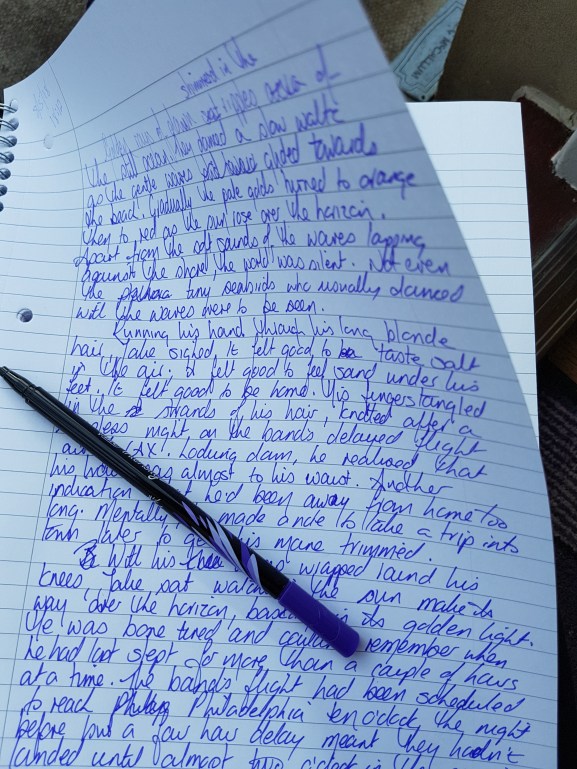 McCALLUM
shimmered in the
the still ocean, they danced a slow waltz
as the gentle waves glided towards
the beach. Gradually the pale golds turned to orange
then to red as the sun rose over the horizon.
Apart from the soft sounds of the waves lapping
against the shore, the world was silent. Not even
the tiny seabirds who usually danced
with the waves were to be seen.
Running his hand through his long blonde
hair, Jake sighed. It felt good to taste salt
in the air. It felt good to feel sand under his
feet. It felt good to be home. His fingers tangled
in the strands of his hair, knotted after a
night on the bands delayed flight
LAX. Looking down, he realised that
his was almost to his waist. Another
indication he'd been away from home too
long. Mentally made a note to take a trip into
town later to his mane trimmed.
With his wrapped round his
knees, Jake sat the sun make its
way over the horizon, in its golden light.
He was bone tired and remember when
he had last slept for more than a couple of hours
at a time. The bands flight had been scheduled
to reach Philadelphia ten o'clock the night
before but a few hour delay meant they hadn't
landed until almost two o'clock in the